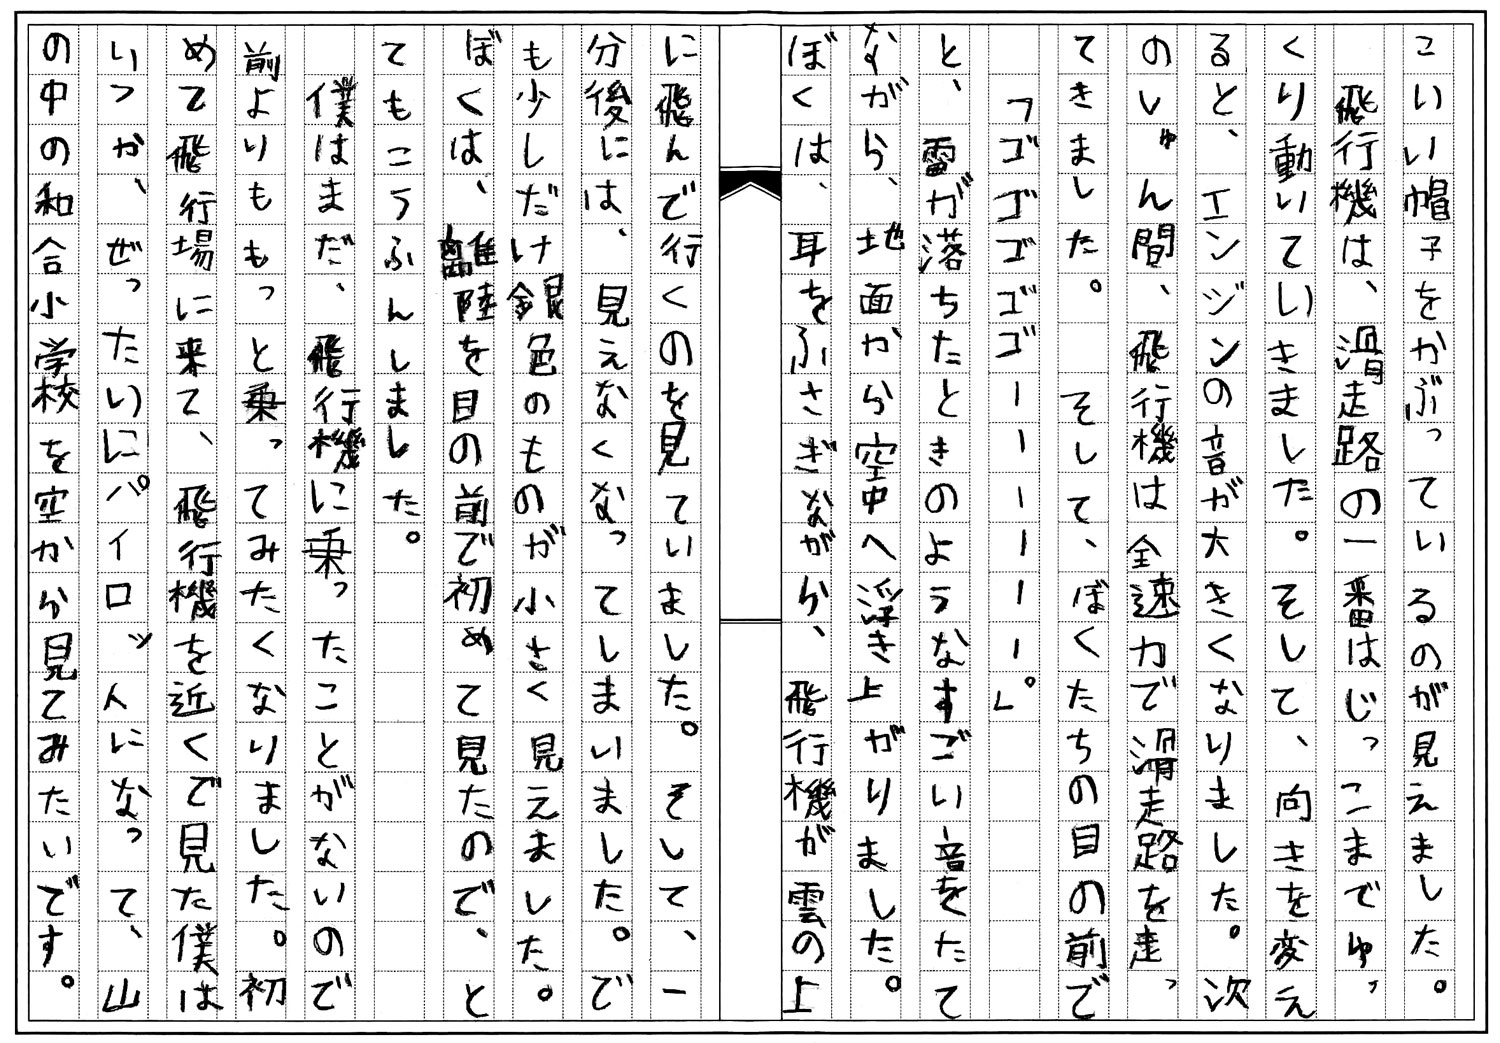 こいい帽子をかぶっているのが見えました。
飛行機は、滑走路の一番はじっこまでゆっ
くり動いていきました。そして、向きを変え
ると、エンジンの音が大きくなりました。次
のしゅん間、飛行機は全速力で滑走路を走っ
てきました。そして、ぼくたちの目の前で
「ゴゴゴゴゴーーーーーー。」
と、雷が落ちたときのようなすごい音をたて
ながら、地面から空中へ浮き上がりました。
ぼくは、耳をふさぎながら、飛行機が雲の上
に飛んで行くのを見ていました。そして、一
分後には、見えなくなってしまいました。で
も少しだけ銀色のものが小さく見えました。
ぼくは、離陸を目の前で初めて見たので、と
てもこうふんしました。
僕はまだ、飛行機に乗ったことがないので
前よりももっと乗ってみたくなりました。初
めて飛行場に来て、飛行機を近くで見た僕は
いつか、ぜったいにパイロッ人になって、山
の中の和合小学校を空から見てみたいです。